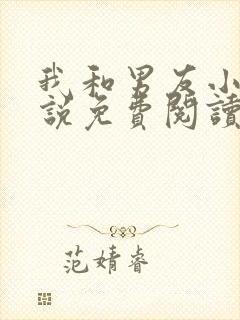 我和男友小
說免費閱讀
范婧睿